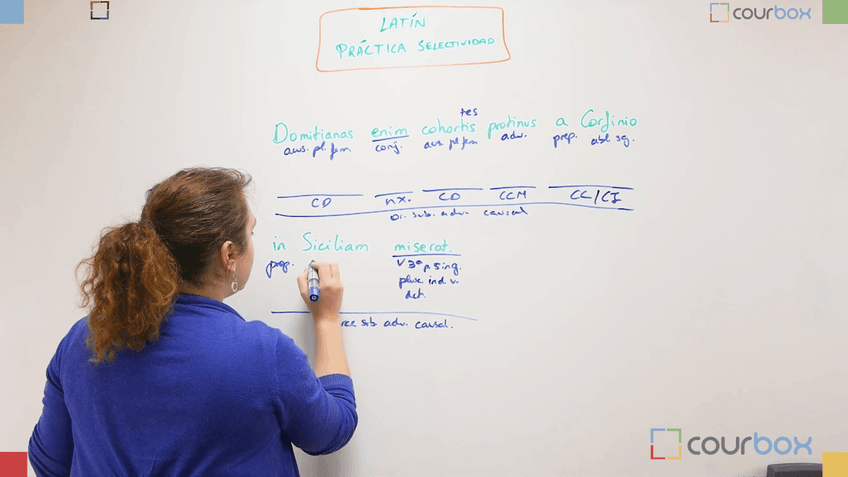 courbox
LATÍN
PRÁCTICA SELECTIVIDAD
tes
Domitianas enim cohortis protinus a Corfinio
acus. pl. fem. conj. acus. pl. fem adv. prep. abl. sg.
CD nx. CD CCM CC/CI
Or. sub. adv. causal
in Siciliam miserat.
prep. V 3ª p sing.
plusc. ind. v.
act.
sub adv. causal.
courbox